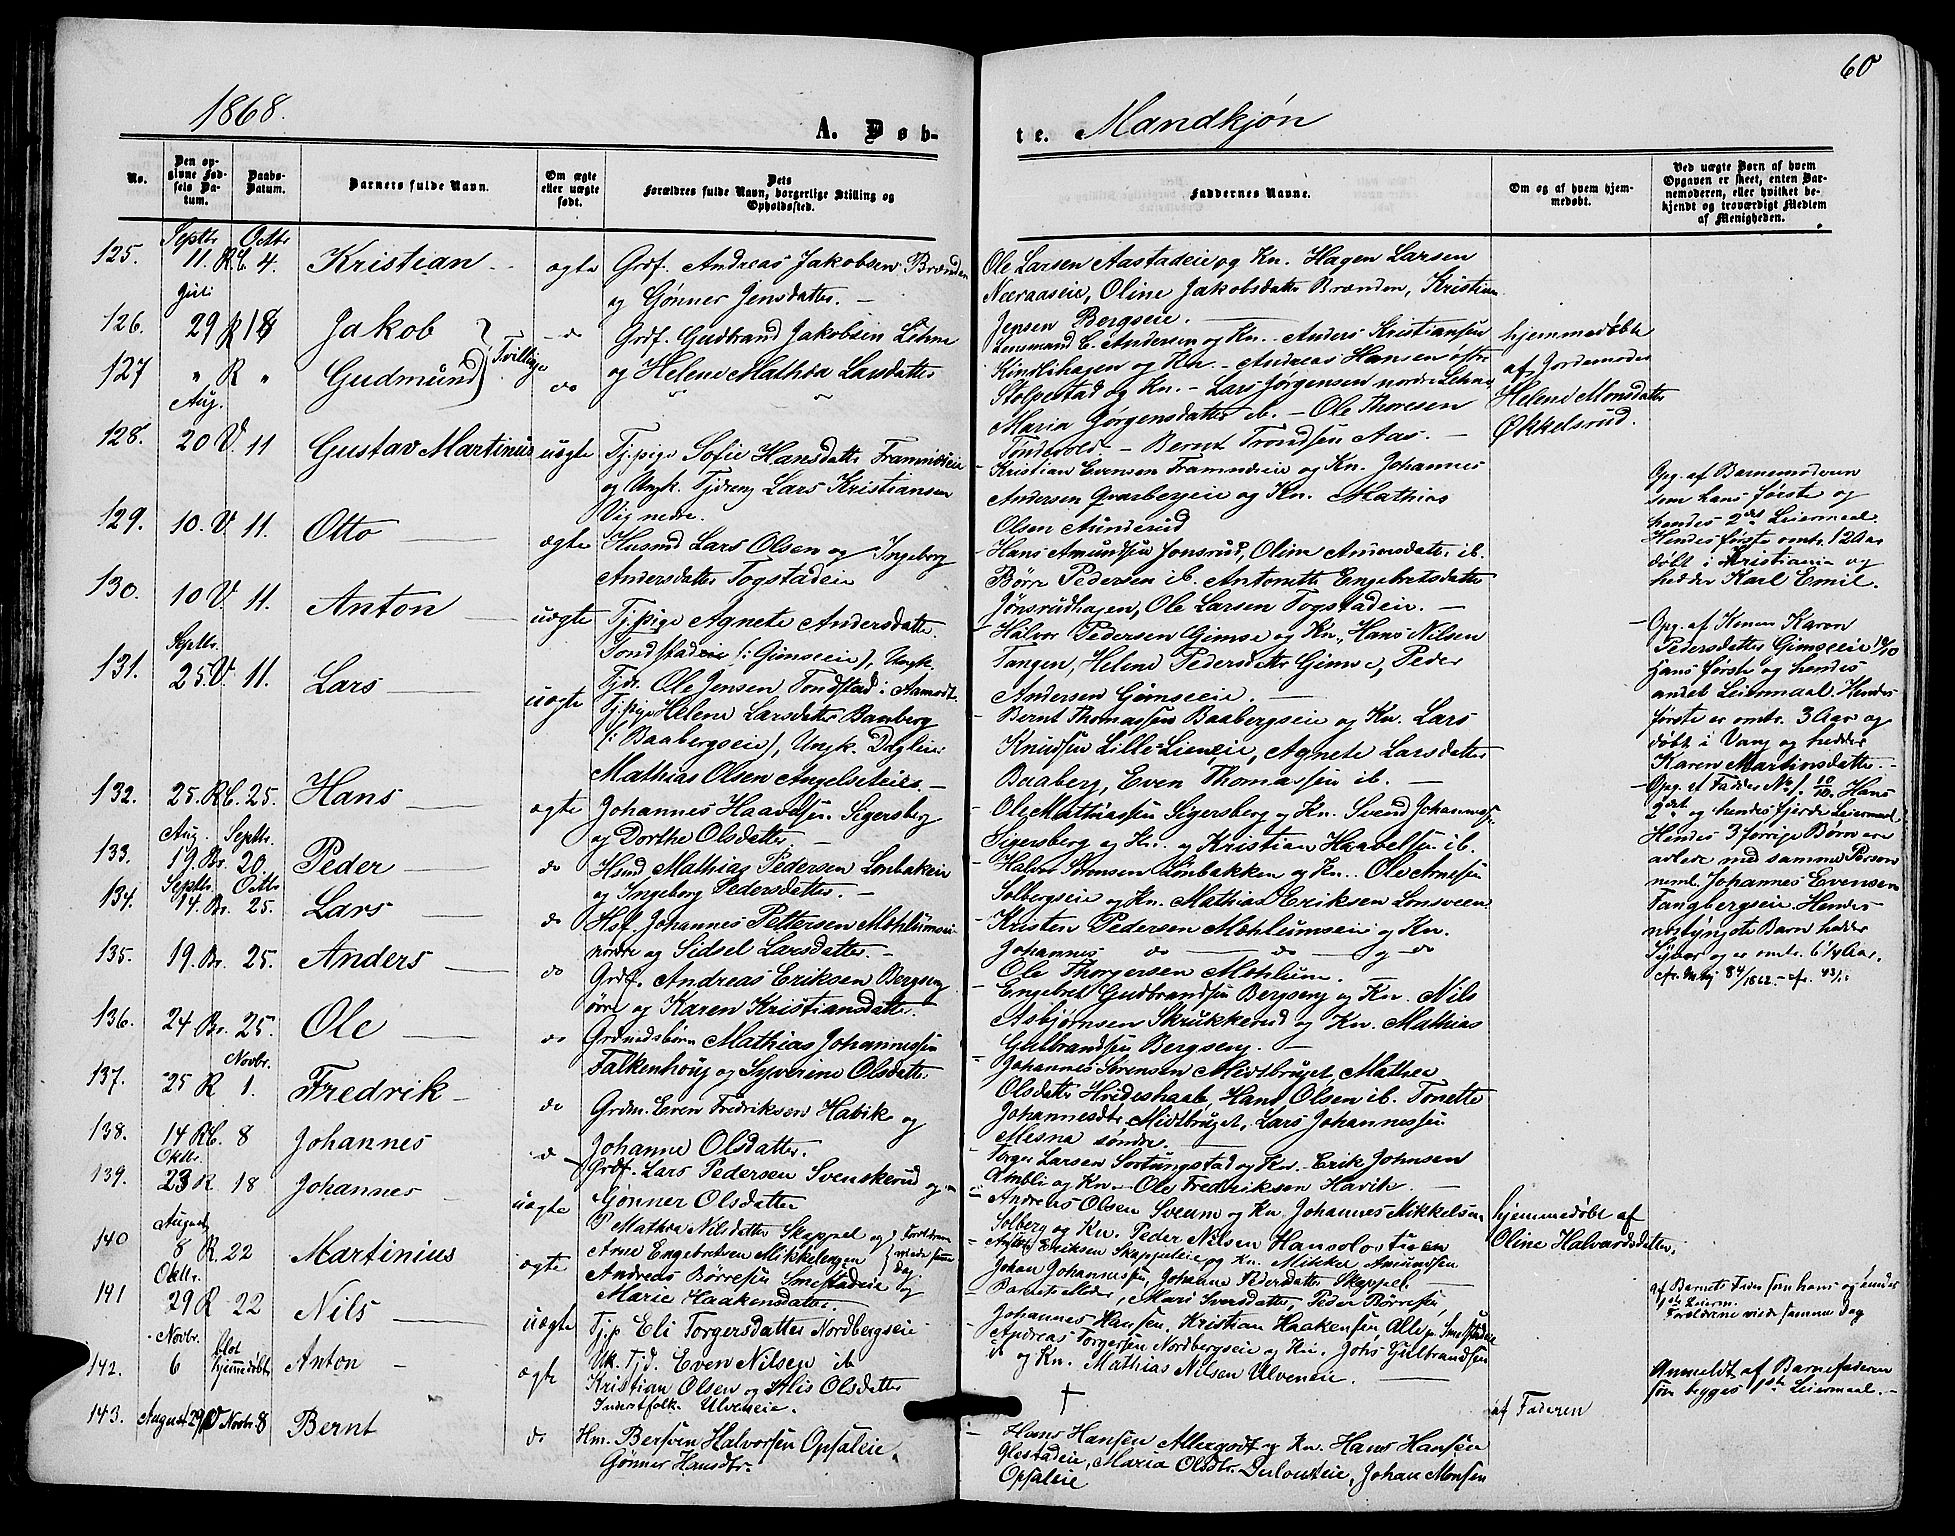 60
1868.
A. Døb-
te. Mandkjøn
No.
Den opgivne Fødsels Datum.
Daabs-Datum.
Barnets fulde Navn.
Om ægte eller uægte født.
Dets Forældres fulde Navn, borgerlige Stilling og Opholdssted.
Faddernes Navne.
Om og af hvem hjemmedøbt.
Ved uægte Børn af hvem Opgaven er skeet, enten Barnemoderen, eller hvilket bekjendt og troværdigt Medlem af Menigheden.
Septbr Octbr
125. 11. R.C. 4. Kristian ægte
Grdf. Andreas Jakobsen Brænden
og Gønner Jensdatter.
Ole Larsen Aastadeie og Kn. Hagen Larsen
Næraaseie, Oline Jakobsdatter Brænden, Kristian
Jensen Bergseie.
Juli
126. 29 R 18 Jakob Tvillinge do
Grdf. Gudbrand Jakobsen Lihne
127 " R " Gudmund do
og Helene Mathea Larsdatter
Lensmand C. Andersen og Kn. Anders Kristiansen
Kinlihagen og Kn. Andreas Hansen østre
Stolpestad og Kn. Lars Jørgensen nordre Lihne
Maria Jørgensdatter ib. Ole Thoresen
Tøndevold. Bernt Trondsen Aas.
hjemmedøbte
af Jordemoder
Helene Monsdatter
Økkelsrud.
Aug.
128. 20 V. 11 Gustav Martinus uægte
Tj.pige Sofie Hansdatter Framnæseie
og Ungk. Tjdreng Lars Kristiansen
Vig nedre.
Kristian Evensen Framnæseie og Kn. Johannes
Andersen Qvarbergeie og Kn. Mathias
Olsen Sunderud
Opg. af Barnemoderen
som Lars' første og
hendes 2det Leiermaal.
Hendes første omtr. 12 Aar
døbt i Kristiania og
hedder Karl Emil.
129. 10. V. 11. Otto ægte
Husmd Lars Olsen og Ingeborg
Andersdatter Togstadeie
Hans Amundsen Jonsrud, Oline Andersdatter ib.
Børre Pedersen ib. Antonette Engebretsdatter
Jønsrudhagen, Ole Larsen Togstadeie.
130. 10 V. 11. Anton uægte
Tj.pige Agnete Andersdatter
Tondstad (: Gimseeie), Ungk.
Tjdr. Ole Jensen Tondstad i Aamodt.
Halvor Pedersen Gimse og Kn., Hans Nilsen
Tangen, Helene Pedersdatter Gimse, Peder
Andersen Gimseeie.
Opg. af Konen Karen
Pedersdatter Gimseeie
hans første og hendes
andet Leiermaal. Hendes
første er omtr. 3 Aar og
døbt i Vang og hedder
Karen Martinsdatter.
Septbr.
131. 25. V. 11. Lars uægte
Tj.pige Helene Larsdatter Baaberg
(: Baabergseie), Ungk. Daglei
Mathias Olsen Angelseteie.
Bernt Thomassen Baabergseie og Kn. Lars
Knudsen Lille-Lieneie, Agnete Larsdatter
Baaberg, Even Thomassen ib.
Opg. af Fadder No 1. Hans
2det og hendes fjerde Leiermaal
Hendes 3 forrige Børn ere
avlede med samme Person
neml. Johannes Evensen
Fangbergseie. Hendes
nestyngste Barn hedder
og er omtr. 6 1/4 Aar.
132. 25. R.C. 25. Hans ægte
Johannes Haavelsen Sigersberg
og Dorthe Olsdatter
Ole Mathiassen Sigersberg og Kn. Svend Johannessen
Sigersberg og Kn. og Kristian Haavelsen ib.
Aug. Septbr.
133. 19. Br. 20. Peder do
Hsmd Mathias Pedersen Lonbakken
og Ingeborg Pedersdatter.
Halvor Simensen Lonbakken og Kn. Ole Arnesen
Solbergseie og Kn. Mathias Eriksen Lonsveen.
Septbr. Octbr
134. 14. Br. 25. Lars do
Hsf. Johannes Pettersen Mæhlumseie
nordre og Sidsel Larsdatter.
Kristen Pedersen Mæhlumseie og Kn.
Johannes do do og do
Ole Thorgersen Mæhlum.
135. 19. Br. 25. Anders do
Grdf. Andreas Eriksen Bergseng
øvre og Karen Kristiansdatter
Engebret Gudbrandsen Bergseng og Kn. Nils
Asbjørnsen Skrukkerud og Kn. Mathias
Gulbrandsen Bergseng.
136. 24 Br. 25. Ole do
Grdmandsbørn Mathias Johannessen
Falkenhoug og Syverine Olsdatter
Johannes Sørensen Midtbruget, Mathea
Olsdatter Hvideshaab, Hans Olsen ib. Tonette
Johannesdtr. Midtbruget, Lars Johannessen
Mesna søndre.
Novbr.
137. 25 R 1. Fredrik do
Grdm. Even Fredriksen Havik og
Johanne Olsdatter.
Torger Larsen Sortungstad og Kn. Erik Johnsen
Ambli og Kn. Ole Fredriksen Havik.
138. 14 R.C. 8 Johannes do
Grdf. Lars Pedersen Svenskerud og
Gønner Olsdatter
Andreas Olsen Sveum og Kn. Johannes Mikkelsen
Solberg og Kn. Peder Nilsen Hansolostuen
Oktbr.
139. 23 R 18 Johannes uægte
P. Mathea Nilsdatter Skappel og
Arne Engebretsen Mikkelengen
Forældrene viede samme Dag
Eriksen Skappeleie og Kn. Mikkel Amundsen
hjemmedøbt af
Oline Halvardsdatter.
August
140 8 R. 22 Martinius ægte
Andreas Børresen Smestadeie og
Marie Haakensdatter.
Johan Johannessen, Johanne Pedersdatter Skappel
Oktbr.
141 29 R 22 Nils uægte
Tj.p Eli Torgersdatter Nordbergseie
Uk. Tjd. Even Nilsen ib
Barnets Moder, Mari Sversdatter, Peder Børresen,
Johannes Hansen, Kristian Haakensen, Alle p. Smestadeie
Andreas Torgersen Nordbergseie og Kn. Johs Gulbrandsen
ib og Kn. Mathias Nilsen Ulveneie.
af Barnets Fader som hans og hendes
1ste Leierm.
Forældrene viede samme Dag
Novbr. blot
142. 6 hjemmedøbt Anton ægte
Kristian Olsen og Alis Olsdatter
Inderstfolk Ulveneie.
†
af Faderen
Anmeldt af Barnefaderen
som begges 1ste Leiermaal.
143. August 29 V Novbr 8 Bernt do
Hm. Bersven Halvorsen Opsaleie
Gønner Hansdtr.
Hans Hansen Allergodt og Kn. Hans Hansen
Glestadeie, Maria Olsdtr. , Johan Monsen
Opsaleie